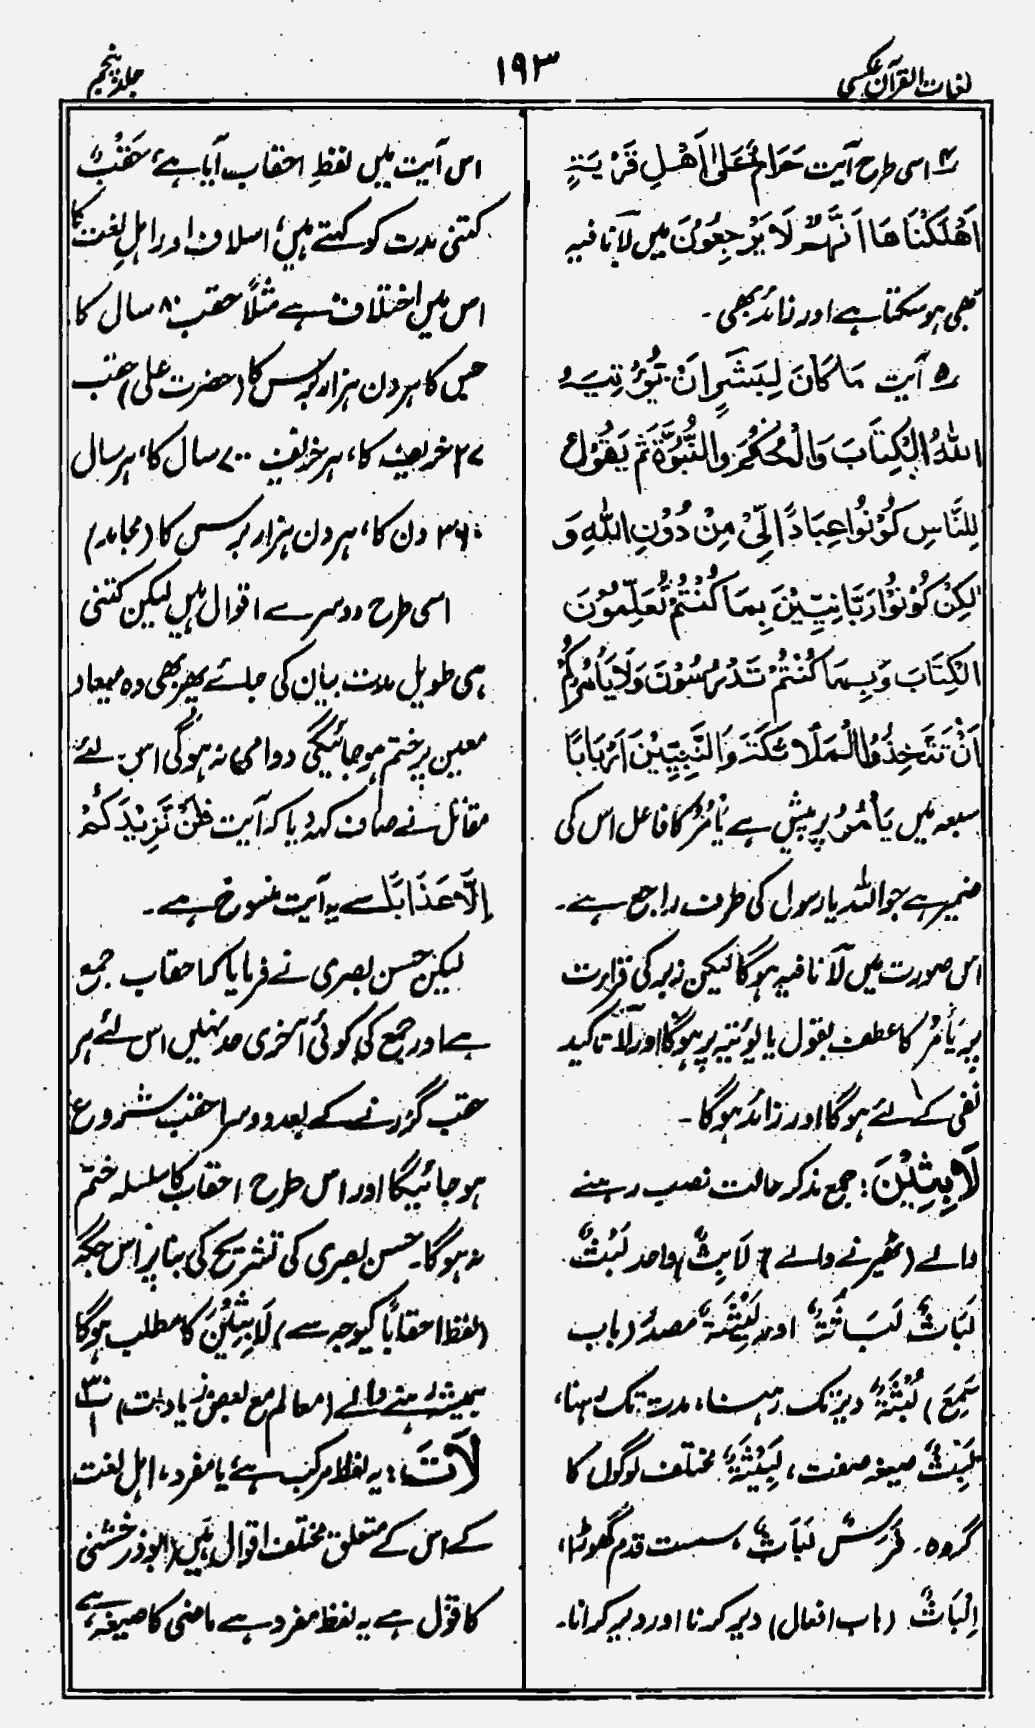 لغات القرآن عکسی
۱۹۳
جلد پنجم
۴ اسی طرح آیت حَرَامٌ عَلٰی اَهْلِ قَرْیَةٍ
اَهْلَكْنَاهَا اَنَّهُمْ لَا یَرْجِعُوْنَ میں لَا نافیہ
بھی ہو سکتا ہے اور زائد بھی۔
۵ آیت مَا كَانَ لِبَشَرٍ اَنْ یُّؤْتِیَهُ
اللّٰهُ الْكِتَابَ وَالْحُكْمَ وَالنُّبُوَّةَ ثُمَّ یَقُوْلَ
لِلنَّاسِ كُوْنُوْا عِبَادًا لِّیْ مِنْ دُوْنِ اللّٰهِ وَ
لٰكِنْ كُوْنُوْا رَبَّانِیّٖیْنَ بِمَا كُنْتُمْ تُعَلِّمُوْنَ
الْكِتَابَ وَبِمَا كُنْتُمْ تَدْرُسُوْنَ وَلَا یَأْمُرُكُمْ
اَنْ تَتَّخِذُوا الْمَلَائِكَةَ وَالنَّبِیّٖیْنَ اَرْبَابًا
سبعہ میں یَأْمُرُ پر پیش ہے یَأْمُرُ کا فاعل اس کی
ضمیر ہے جو اللہ یا رسول کی طرف راجع ہے۔
اس صورت میں لَا نافیہ ہوگا لیکن زبر کی قرارت
پر یَأْمُرَ کا عطف یقول یا یؤتیہ پر ہوگا اور لَا تاکید
نفی کے لئے ہوگا اور زائد ہوگا۔
لَابِثِیْنَ: جمع مذکر حالت نصب رہنے
والے (ٹھیرنے والے) لَابِثٌ واحد لَبْثٌ
لَبَاثٌ لَبَاثَةٌ اور لَبِیْثَةٌ مصدر (باب
سَمِعَ) لُبْثَةٌ دیر تک رہنا، مدت تک رہنا،
لَبِثٌ صیغہ صفت، لَبِیْثَةٌ مختلف لوگوں کا
گروہ۔ فَرَسٌ لَبَاثٌ، سست قدم گھوڑا،
اِلْبَاثٌ (باب افعال) دیر کرنا اور دیر کرانا۔
اس آیت میں لفظِ احقاب آیا ہے، حَقْبٌ
کتنی مدت کو کہتے ہیں، اسلاف اور اہلِ لغت کا
اس میں اختلاف ہے مثلاً حقب ۸۰ سال کا
جس کا ہر دن ہزار برس کا (حضرت علی) حقب
۲۷ خریف کا، ہر خریف ۷۰۰ سال کا، ہر سال
۳۶۰ دن کا، ہر دن ہزار برس کا (مجاہد)
اسی طرح دوسرے اقوال ہیں لیکن کتنی
ہی طویل مدت بیان کی جائے پھر بھی وہ میعاد
معین پر ختم ہو جائیگی دوامی نہ ہوگی اس لئے
مقاتل نے صاف کہدیا کہ آیت فَلَنْ نَّزِیْدَكُمْ
اِلَّا عَذَابًا سے یہ آیت منسوخ ہے۔
لیکن حسن بصری نے فرمایا کہ احقاب جمع
ہے اور جمع کی کوئی آخری حد نہیں اس لئے ہر
حقب گزرنے کے بعد دوسرا حقب شروع
ہو جائیگا اور اس طرح احقاب کا سلسلہ ختم
نہ ہوگا۔ حسن بصری کی تشریح کی بنا پر اس جگہ
(لفظ احقابًا کیوجہ سے) لَابِثِیْنَ کا مطلب ہوگا
ہمیشہ رہنے والے (معالم مع بعض زیادت)
لَاتَ: یہ لفظ مرکب ہے یا مفرد، اہل لغت
کے اس کے متعلق مختلف اقوال ہیں (ابوذر خشنی
کا قول ہے یہ لفظ مفرد ہے ماضی کا صیغہ ہے،